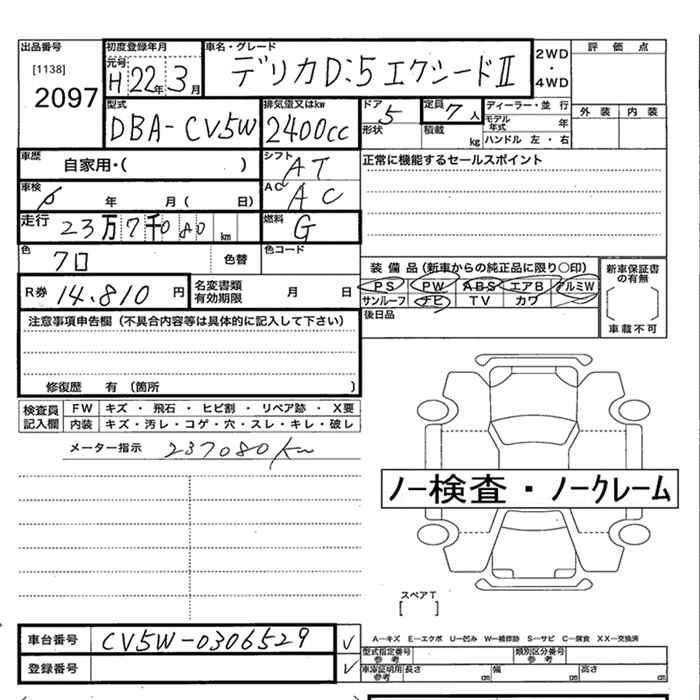 出品番号
[1138]
2097
初度登録年月
元号
H 22年 3月
車名・グレード
デリカD:5 エクシードⅡ
2WD
・
4WD
評価点
外装 内装
型式
DBA-CV5W
排気量又はkw
2400cc
ドア
5
形状
定員
7人
積載
kg
ディーラー・並行
モデル年式 年
ハンドル 左・右
車歴
自家用・( )
シフト
AT
正常に機能するセールスポイント
車検
年 月( 日)
AC
AC
走行
23万7千080km
燃料
G
色
クロ
色替
色コード
装備品(新車からの純正品に限り○印)
PS PW ABS エアB アルミW
サンルーフ ナビ TV カワ
新車保証書の有無
車載不可
後日品
R券 14.810 円
名変書類有効期限 月 日
注意事項申告欄(不具合内容等は具体的に記入して下さい)
修復歴 有(箇所 )
検査員記入欄
FW キズ・飛石・ヒビ割・リペア跡・X要
内装 キズ・汚レ・コゲ・穴・スレ・キレ・破レ
メーター指示 237080km
ノー検査・ノークレーム
スペアT
[ ]
車台番号
CV5W-0306529
登録番号
A―キズ E―エクボ U―凹み W―補修跡 S―サビ C―腐食 XX―交換済
型式指定番号
参考
類別区分番号
参考
車庫証明用
参考
長さ cm 幅 cm 高さ cm